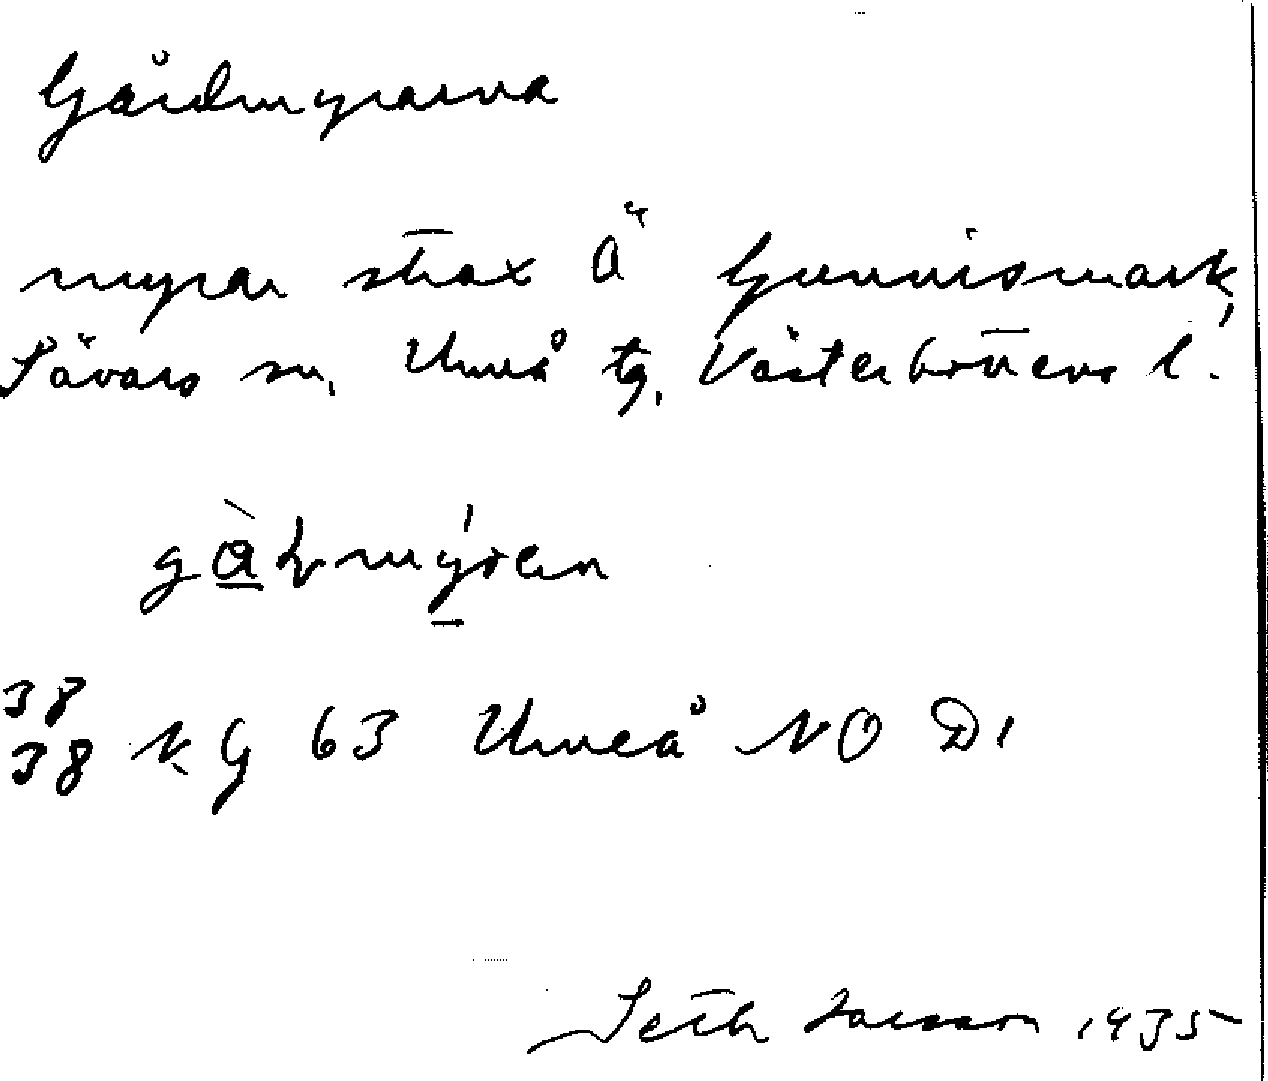 Gårdmyrarna
myrar strax Ö Gunnismark,
Sävars sn, Umeå tg, Västerbottens l.
38
38 N G 63 Umeå NO D1
Seth Larsson 1935